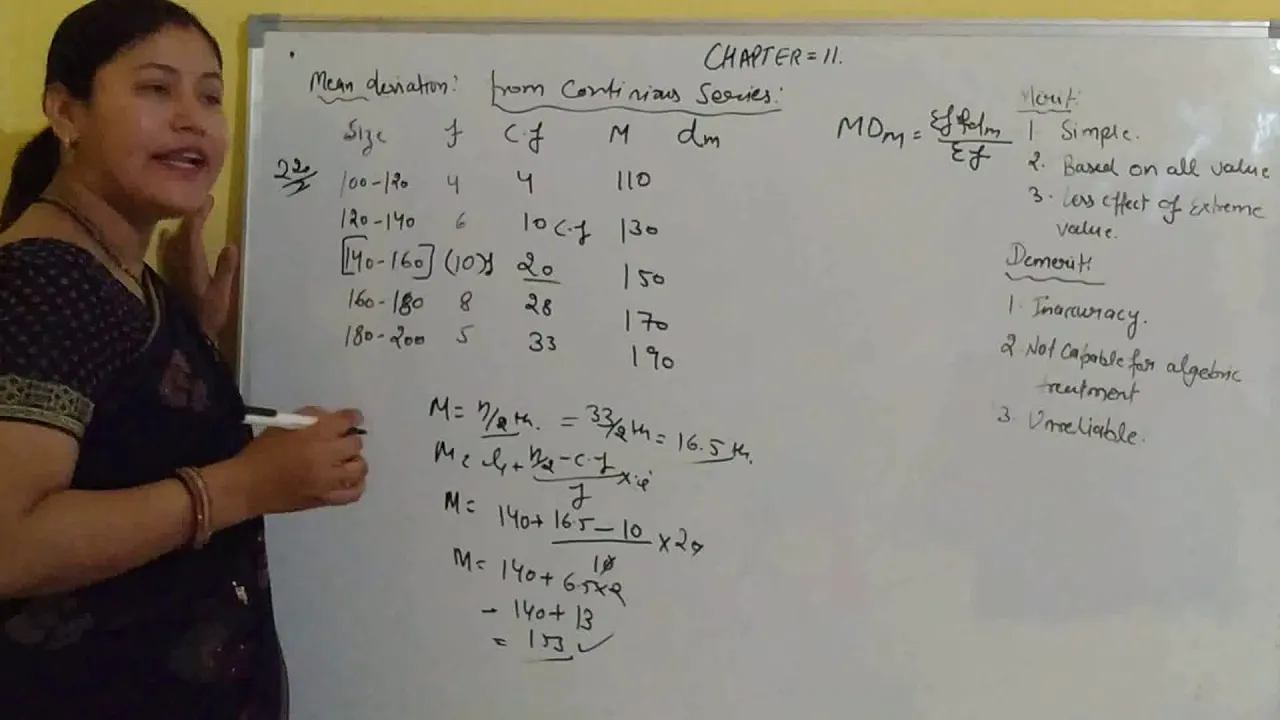 CHAPTER = 11.
Mean deviation: from Continious Series:
Size f C.f M dm
100-120 4 4 110
120-140 6 10 C.f 130
[140-160] (10)f 20 150
160-180 8 28 170
180-200 5 33 190
M = n/2 th. = 33/2 th = 16.5 th.
M = l1 + n/2 - C.f / f × i
M = 140 + 16.5 - 10 / 10 × 20
M = 140 + 6.5 × 2
= 140 + 13
= 153 ✓
MDm = Σf dm / Σf
Merit:
1 Simple.
2. Based on all value
3. Less effect of Extreme
value.
Demerit:
1. Inaccuracy.
2 Not Capable for algebric
treatment
3. Unreliable.